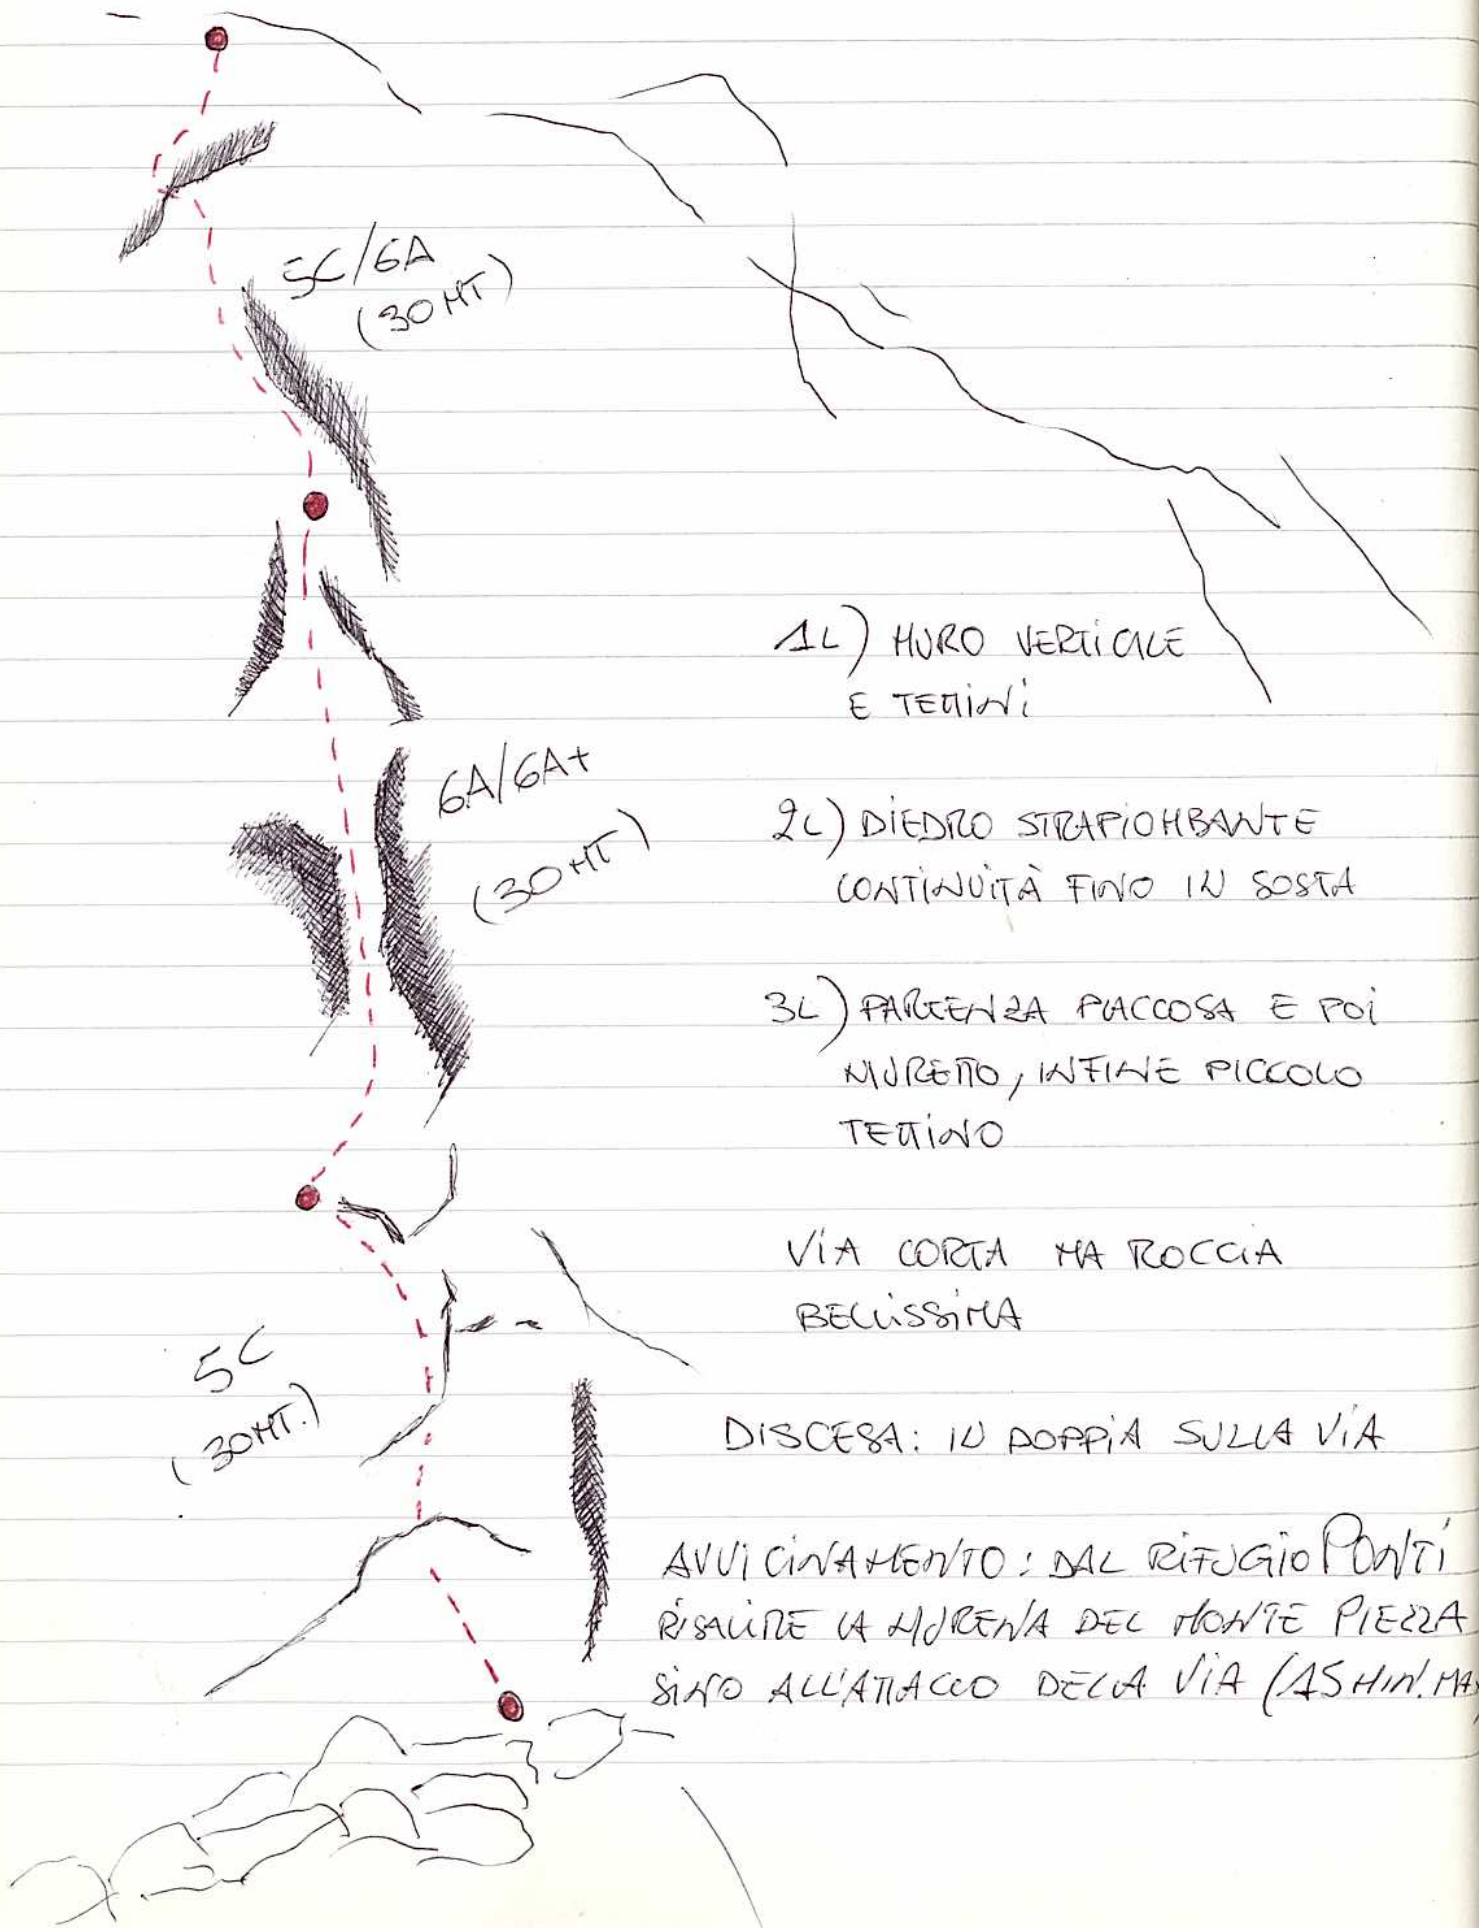 5C/6A
(30 MT)
1L) MURO VERTICALE
E TETTINI
6A/6A+
(30 MT)
2L) DIEDRO STRAPIOMBANTE
CONTINUITÀ FINO IN SOSTA
3L) PARTENZA PLACCOSA E POI
MURETTO, INFINE PICCOLO
TETTINO
VIA CORTA MA ROCCIA
BELLISSIMA
5C
(30 MT.)
DISCESA: IN DOPPIA SULLA VIA
AVVICINAMENTO: DAL RIFUGIO PONTI
RISALIRE LA MORENA DEL MONTE PIEZZA
SINO ALL'ATTACCO DELLA VIA (15 MIN. MAX